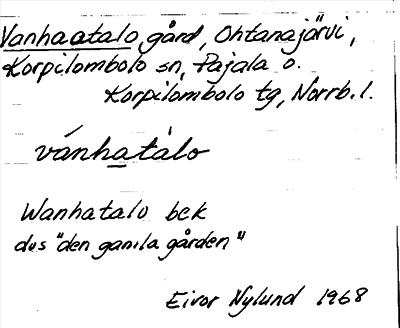 Vanhaatalo gård, Ohtanajärvi,
Korpilombolo sn, Pajala o.
Korpilombolo tg, Norrb. l.
vánhatàlo
Wanhatalo bek
dvs "den gamla gården"
Eivor Nylund 1968